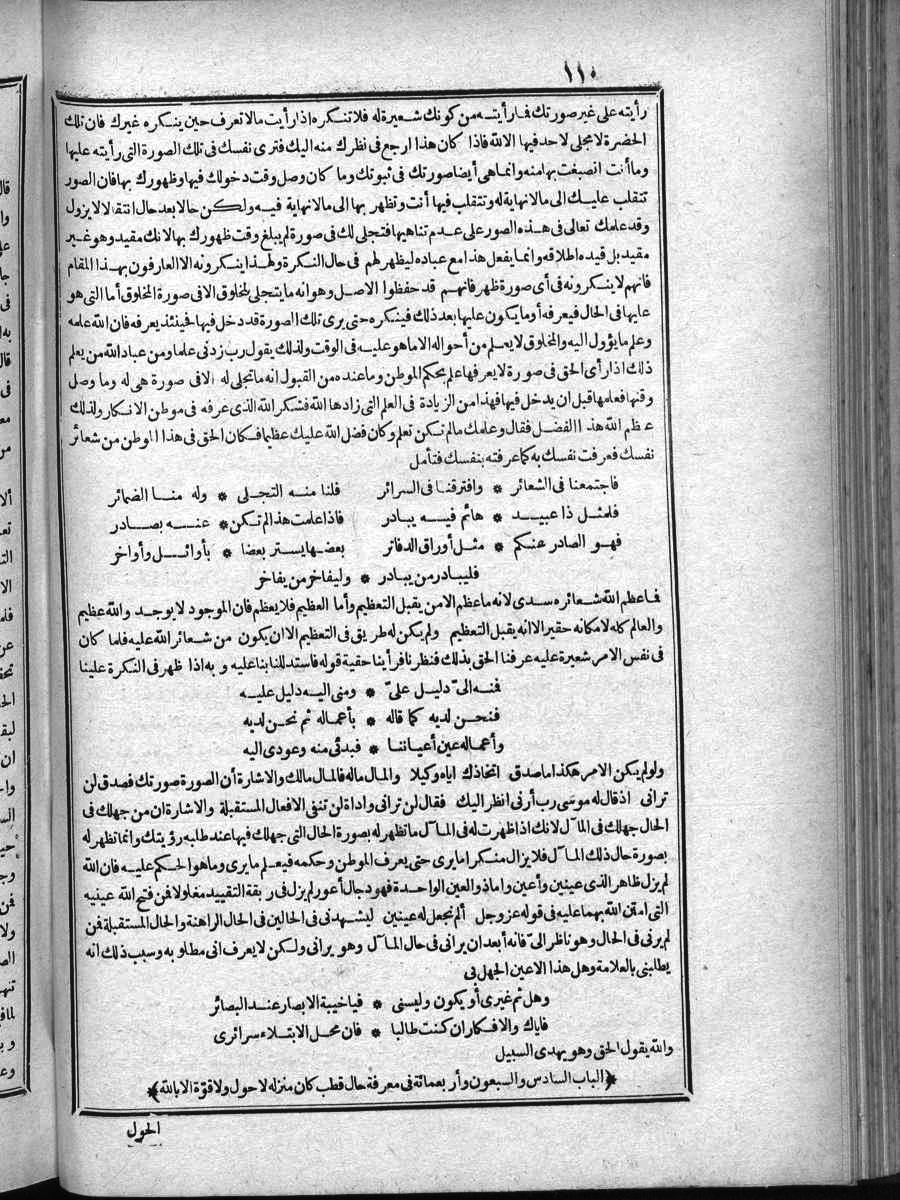 ١١٠
رأيته على غير صورتك فما رأيته من كونك شعيرة له فلا تنكره اذا رأيت مالا تعرف حين ينكره غيرك فان تلك
الحضرة لا مجلى لاحد فيها الا لله فاذا كان هذا ارجع فى نظرك منه اليك فترى نفسك فى تلك الصورة التى رأيته عليها
وما أنت انصبغت بها منه وانما هى أيضا صورتك فى ثبوتك وما كان وصل وقت دخولك فيها وظهورك بها فان الصور
تتقلب عليك الى مالا نهاية له وتتقلب فيها أنت وتظهر بها الى مالا نهاية فيه ولكن حالا بعد حال انتقالا لا يزول
وقد علمك تعالى فى هذه الصور على عدم تناهيها فتجلى لك فى صورة لم يبلغ وقت ظهورك بها لانك مقيد وهو غير
مقيد بل قيده اطلاقه وانما يفعل هذا مع عباده ليظهر لهم فى حال النكرة ولهذا ينكرونه الا العارفون بهذا المقام
فانهم لا ينكرونه فى أى صورة ظهر فانهم قد حفظوا الاصل وهو انه ما يتجلى لمخلوق الا فى صورة المخلوق أما التى هو
عليها فى الحال فيعرفه أو ما يكون عليها بعد ذلك فينكره حتى يرى تلك الصورة قد دخل فيها فحينئذ يعرفه فان الله علمه
وعلم ما يؤول اليه والمخلوق لا يعلم من أحواله الا ما هو عليه فى الوقت ولذلك يقول رب زدنى علما ومن عباد الله من يعلم
ذلك اذا رأى الحق فى صورة لا يعرفها علم بحكم الموطن وما عنده من القبول انه ما تجلى له الا فى صورة هى له وما وصل
وقتها فعلمها قبل ان يدخل فيها فهذا من الزيادة فى العلم التى زادها الله فشكر الله الذى عرفه فى موطن الانكار ولذلك
عظم الله هذا الفضل فقال وعلمك مالم تكن تعلم وكان فضل الله عليك عظيما فكان الحق فى هذا الموطن من شعائر
نفسك فعرفت نفسك به كما عرفته بنفسك فتأمل
فاجتمعنا فى الشعائر * وافترقنا فى السرائر فلنا منه التجلى * وله منا الضمائر
فلمثل ذا عبيد * هائم فيه يبادر فاذا علمت هذا لم تكن * عنه بصادر
فهو الصادر عنكم * مثل أوراق الدفاتر بعضها يستر بعضا * بأوائل وأواخر
فليبادر من يبادر * وليفاخر من يفاخر
فاعظم الله شعائره سدى لانه ما عظم الا من يقبل التعظيم وأما العظيم فلا يعظم فان الموجود لا يوجد والله عظيم
والعالم كله لامكانه حقير الا انه يقبل التعظيم ولم يكن له طريق فى التعظيم الا ان يكون من شعائر الله عليه فلما كان
فى نفس الامر شعيرة عليه عرفنا الحق بذلك فنظرنا فرأينا حقية قوله فاستدللنا بنا عليه وبه اذا ظهر فى النكرة علينا
فمنه الىّ دليل علىّ * ومنى اليه دليل عليه
فنحن لديه كما قاله * بأعماله ثم نحن لديه
وأعماله عين أعياننا * فبدئى منه وعودى اليه
ولو لم يكن الامر هكذا ما صدق اتخاذك اياه وكيلا والمال ماله فالمال مالك والاشارة أن الصورة صورتك فصدق لن
ترانى اذ قال له موسى رب أرنى انظر اليك فقال لن ترانى واداة لن تنفى الافعال المستقبلة والاشارة ان من جهلك فى
الحال جهلك فى المآل لانك اذا ظهرت له فى المآل ما تظهر له بصورة الحال التى جهلك فيها عند طلبه رؤيتك وانما تظهر له
بصورة حال ذلك المآل فلا يزال منكرا ما يرى حتى يعرف الموطن وحكمه فيعلم ما يرى وما هو الحكم عليه فان الله
لم يزل ظاهر الذى عينين وأعين واما ذو العين الواحدة فهو دجال أعور لم يزل فى ربقة التقييد مغلولا فمن فتح الله عينيه
التى امتن الله بهما عليه فى قوله عز وجل ألم نجعل له عينين ليشهدنى فى الحالين فى الحال الراهنة والحال المستقبلة فمن
لم يرنى فى الحال وهو ناظر الىّ فانه أبعد ان يرانى فى حال المآل وهو يرانى ولكن لا يعرف انى مطلوبه وسبب ذلك انه
يطلبنى بالعلامة وهل هذا الا عين الجهل بى
وهل ثم غيرى أو يكون وليسنى * فيا خيبة الابصار عند البصائر
فاياك والافكار ان كنت طالبا * فان محل الابتلاء سرائرى
والله يقول الحق وهو يهدى السبيل
﴿الباب السادس والسبعون وأربعمائة فى معرفة حال قطب كان منزله لا حول ولا قوّة الا بالله﴾
الحول